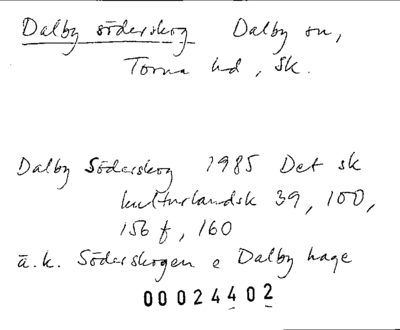 Dalby söderskog Dalby sn,
Torna hd, Sk.
Dalby Söderskog 1985 Det sk
kulturlandsk 39, 100,
156 f, 160
ä.k. Söderskogen e Dalby hage
00024402